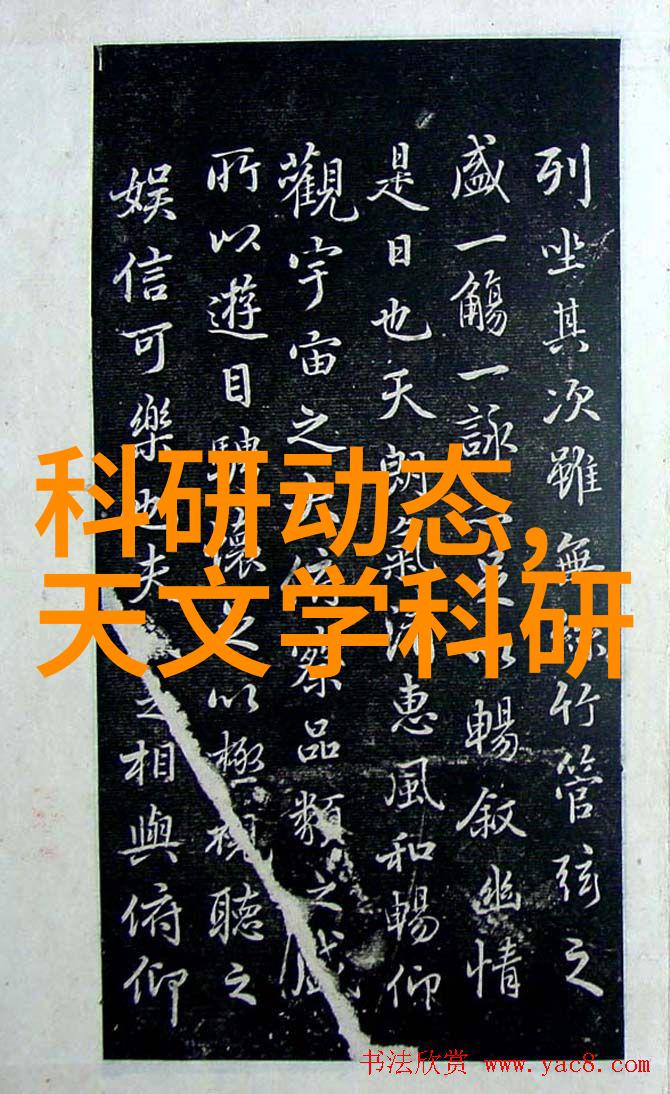 列坐其次雖無竹管弦之
盛一觴一詠暢叙幽情
是日也天朗氣惠風和暢仰
觀宇宙之俯察品類之盛
所以遊目騁懷以極視聽之
娛信可樂也夫之相與俯仰
科研动态,
天文学科研
书法欣赏 www.yac8.com